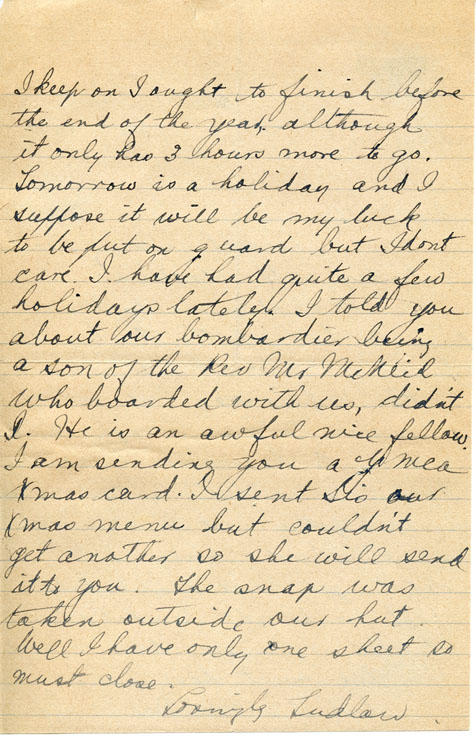 I keep on I ought to finish before
the end of the year, although
it only has 3 hours more to go.
Tomorrow is a holiday and I
suppose it will be my luck
to be put on guard but I dont
care. I have had quite a few
holidays lately. I told you
about our bombardier being
a son of the Rev Mr McNeid
who boarded with us, didn't
I. He is an awful nice fellow.
I am sending you a Y mca
Xmas card. I sent Sis our
Xmas menu but couldn't
get another so she will send
it to you. The snap was
taken outside our hut.
Well I have only one sheet so
must close.
Lovingly Ludlow.